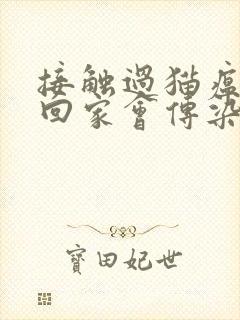 接触過猫瘟
回家會傳染
寳田妃世